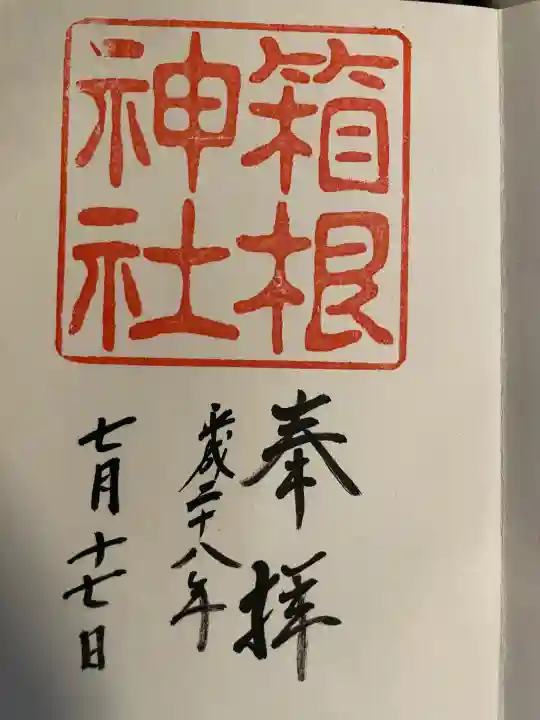 箱根
神社
奉拝
平成二十八年
七月十七日